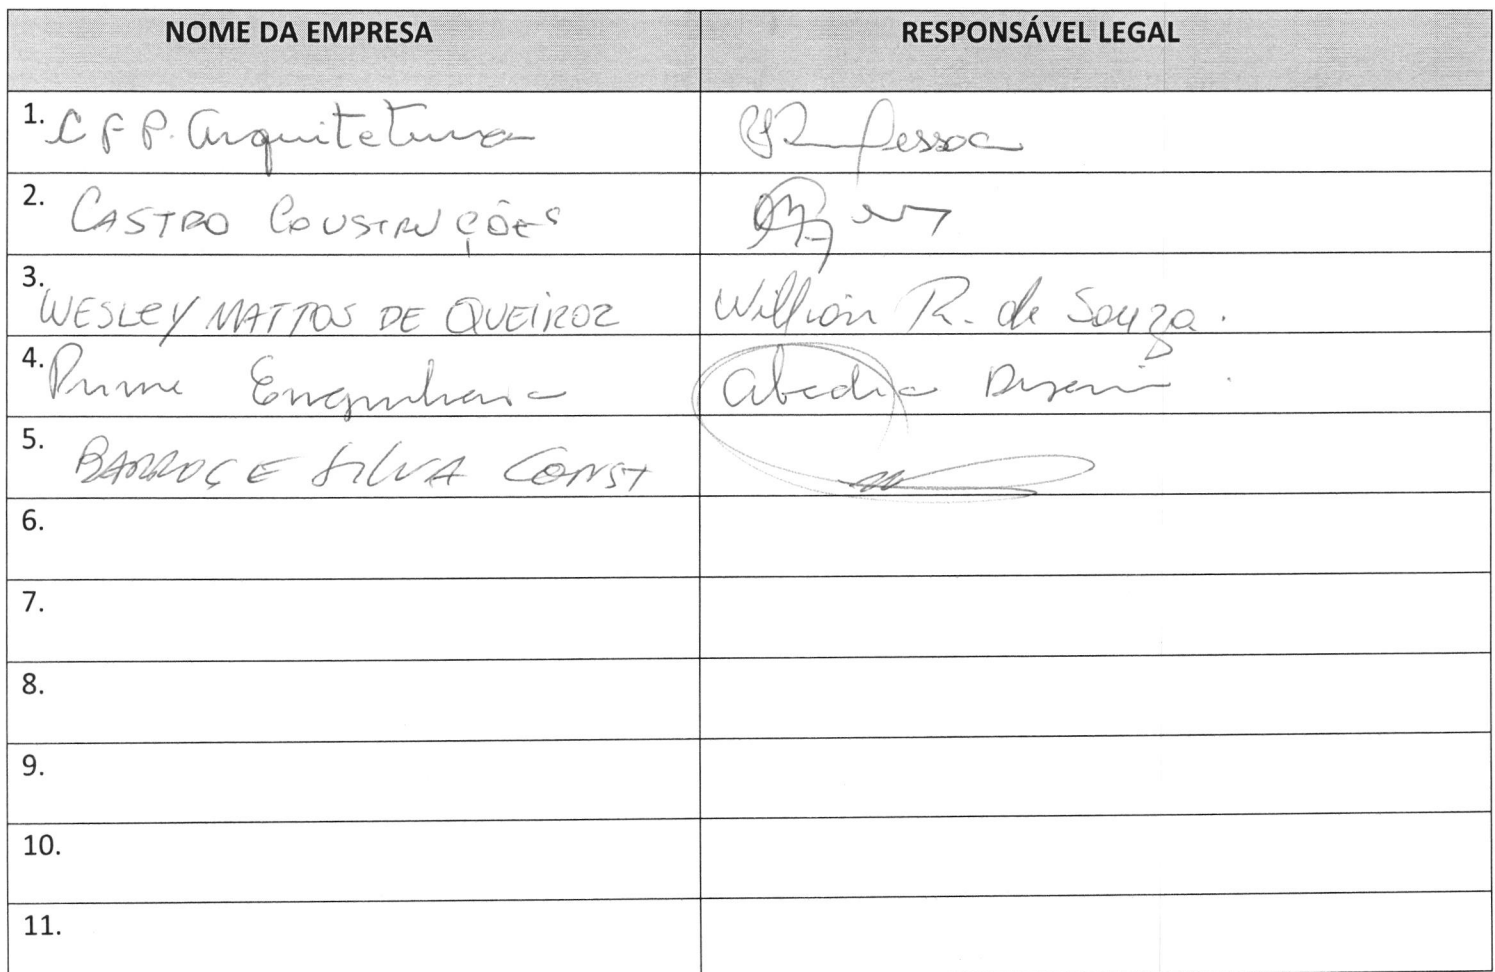 NOME DA EMPRESA RESPONSÁVEL LEGAL
1. CFP. Arquitetura Pessoa
2. CASTRO CONSTRUÇÕES
3. WESLEY MATTOS DE QUEIROZ Willion R. de Souza.
4. Prime Engenharia Abadia
5. BARROS E SILVA CONST
6.
7.
8.
9.
10.
11.